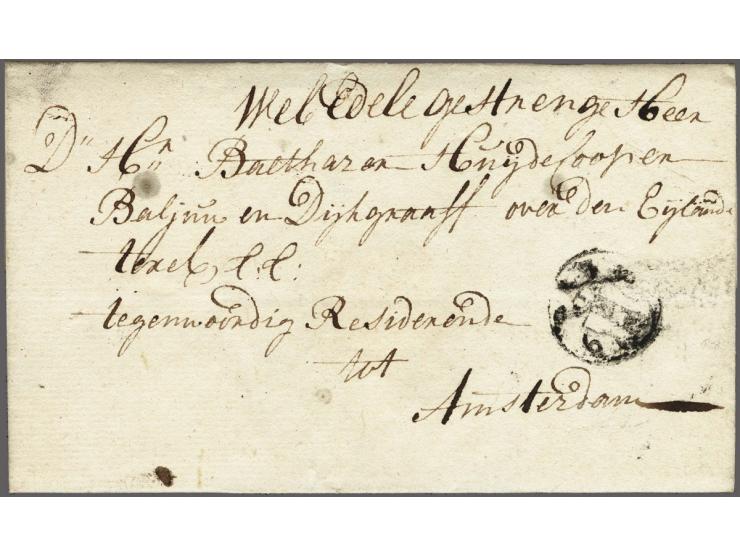 Wel Edele gestrenge Heer
D'' Hr Balthazar Huijdecooper
Baljuu en Dijkgraaff over den Eijlande
texel, &:&:
tegenwoordig Residerende
tot
Amsterdam